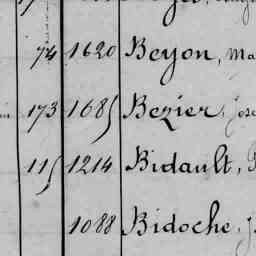 74 1620 Beyon, Ma
173 1685 Bezier, Jose
115 1214 Bidault, 
1088 Bidoche, J